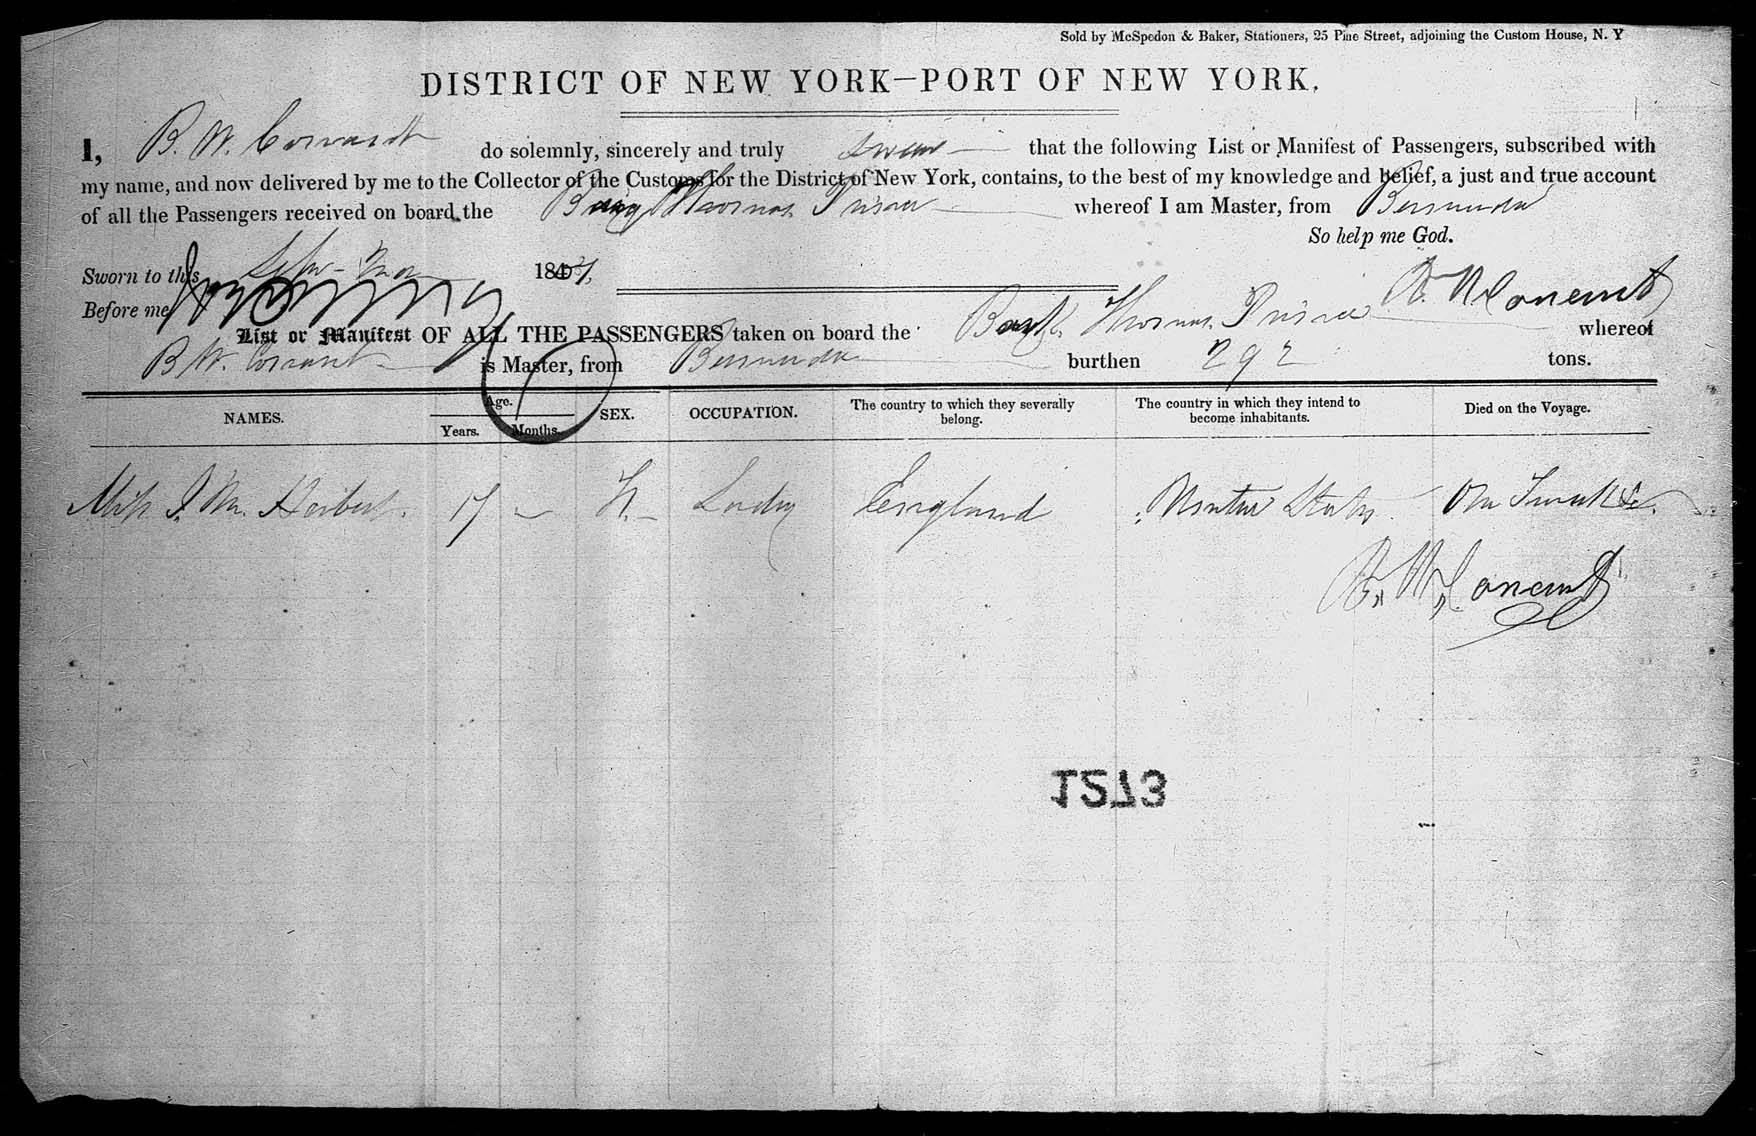 Sold by McSpedon & Baker, Stationers, 25 Pine Street, adjoining the Custom House, N. Y
DISTRICT OF NEW YORK—PORT OF NEW YORK,
I, B. W. do solemnly, sincerely and truly swear that the following List or Manifest of Passengers, subscribed with
my name, and now delivered by me to the Collector of the Customs for the District of New York, contains, to the best of my knowledge and belief, a just and true account
of all the Passengers received on board the Thomas whereof I am Master, from Bermuda
So help me God.
Sworn to this 184
Before me
List or Manifest OF ALL THE PASSENGERS taken on board the Bark Thomas whereof
B W. is Master, from Bermuda burthen 292 tons.
NAMES. Age. Years. Months. SEX. OCCUPATION. The country to which they severally belong. The country in which they intend to become inhabitants. Died on the Voyage.
Miss J. M. 17 Lady England States
1273